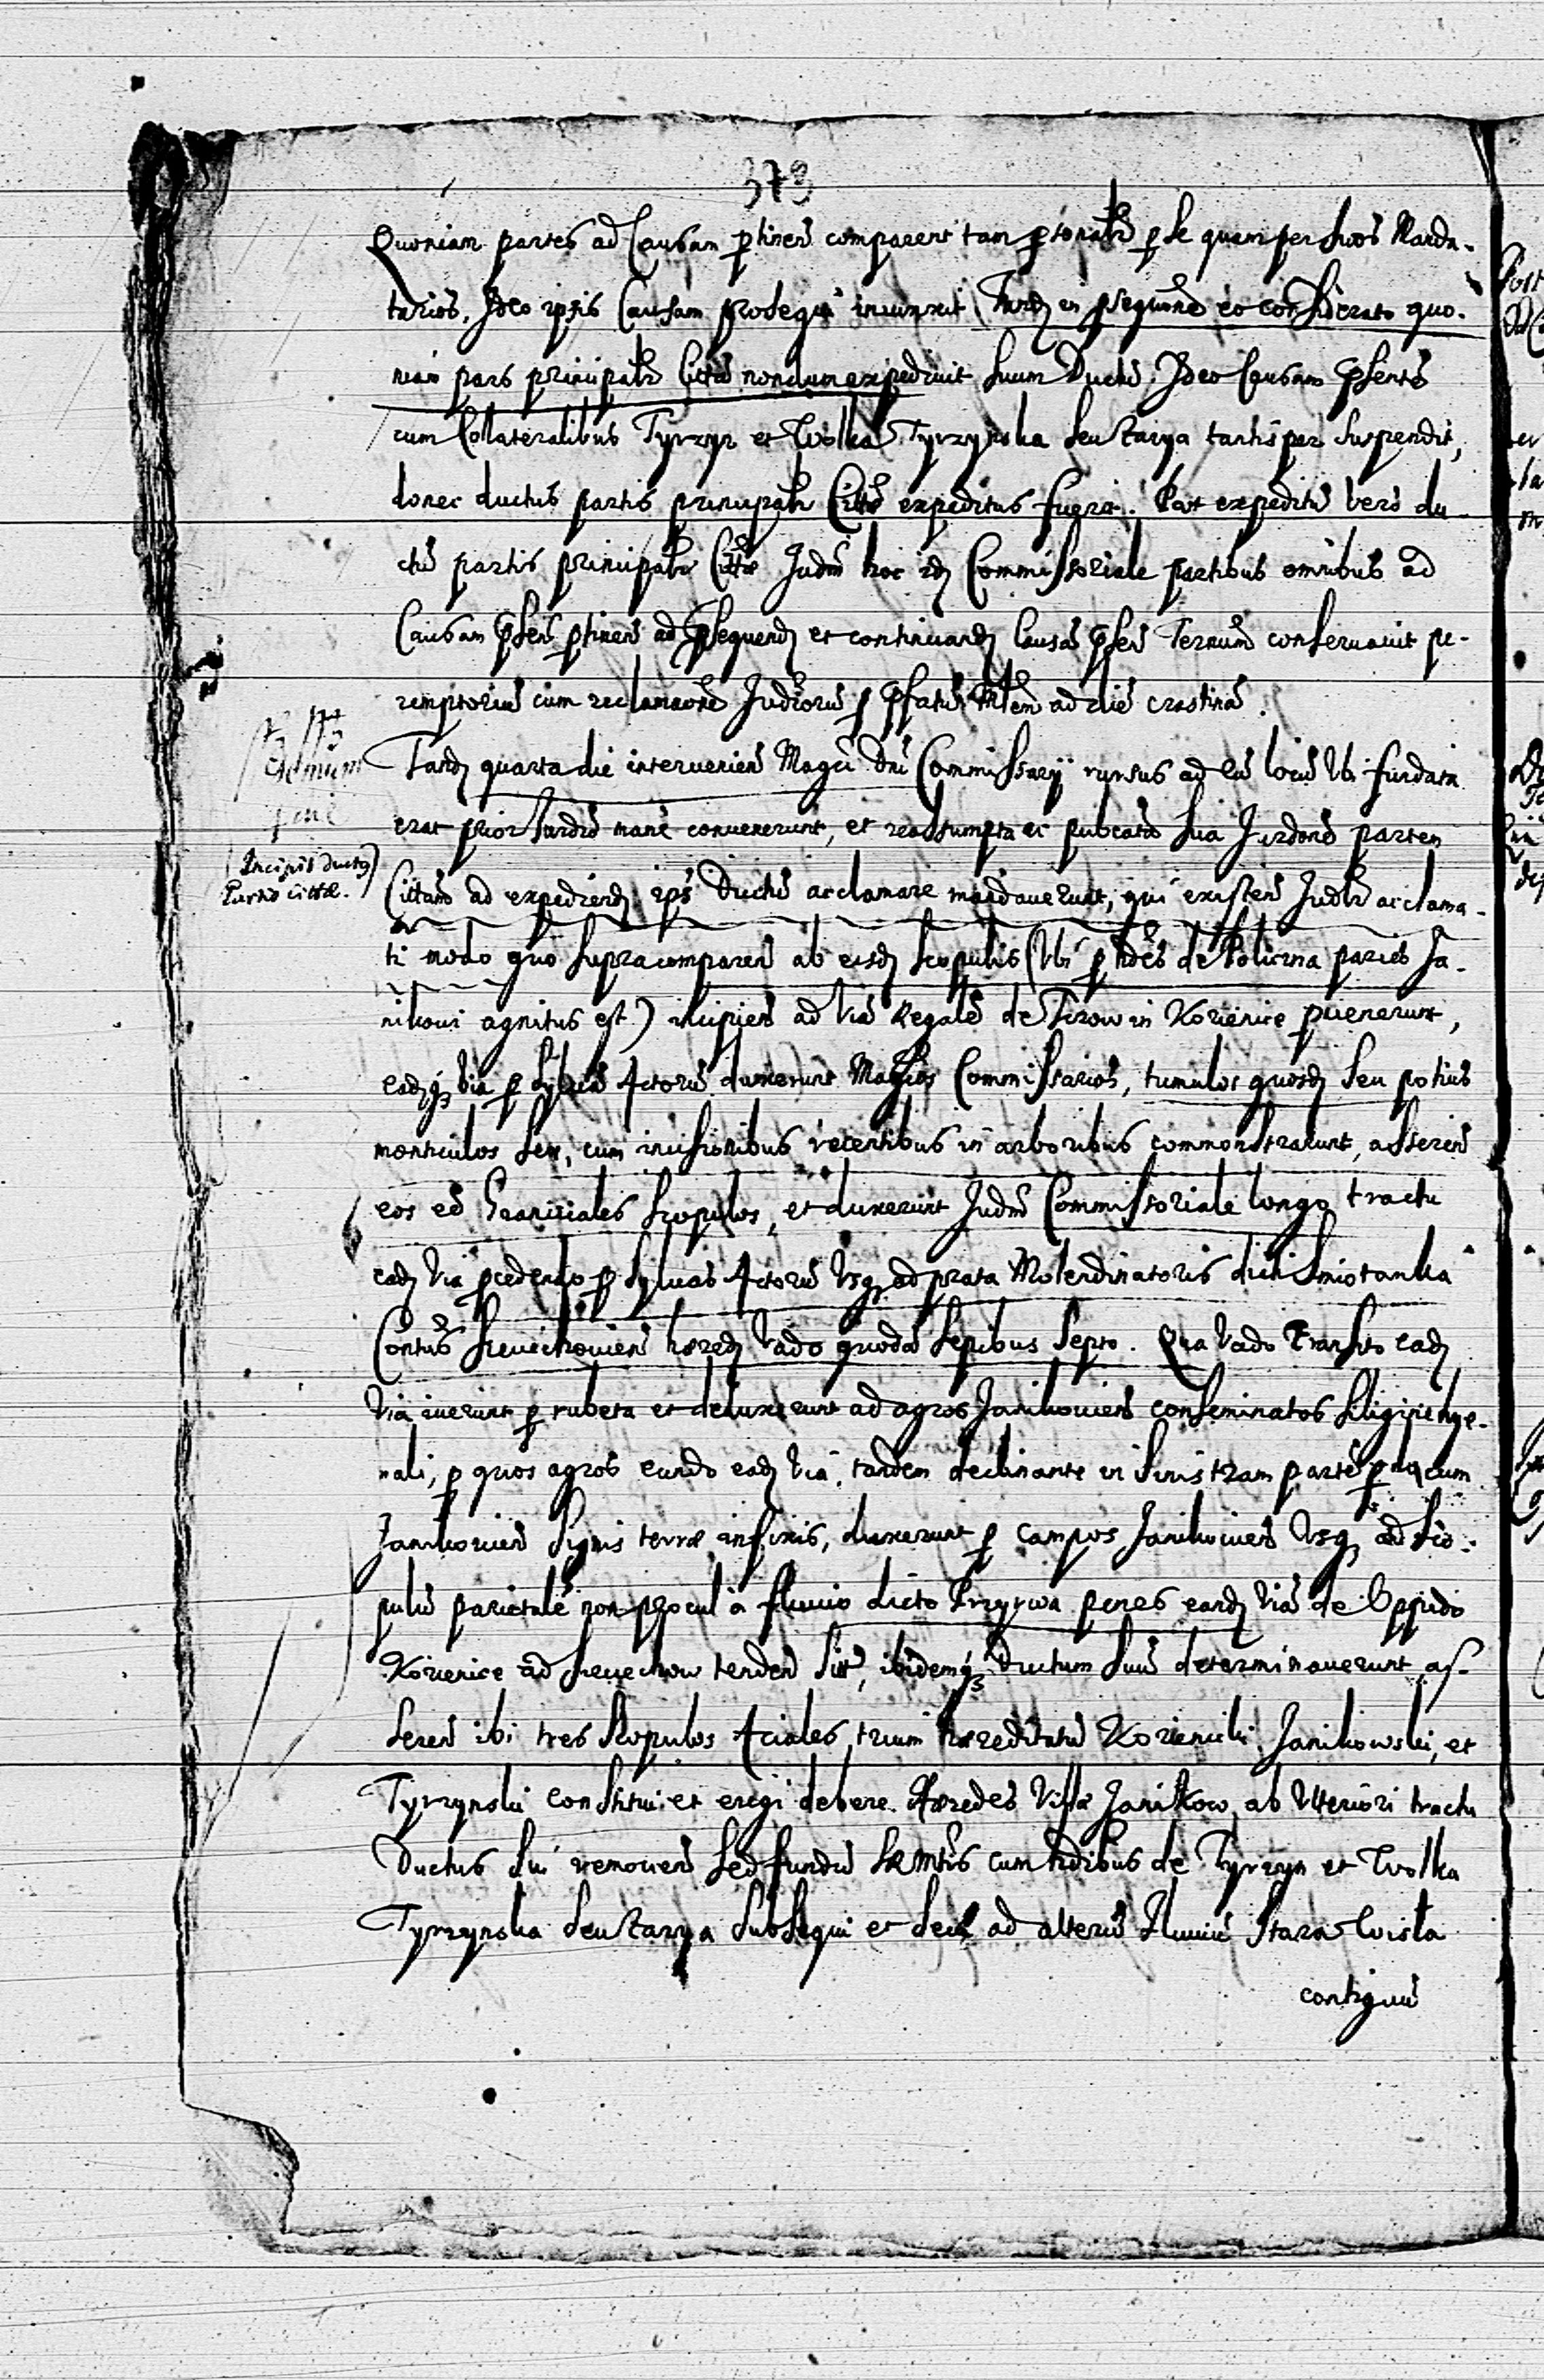 373
Quoniam partes ad Causam ptinen comparent tam psonalr p se quam per suos Manda-
tarios, Ideo ipsis Causam prosequi iniunxit (Tandē in psequone eo considerato quo-
niam pars principalr Citta nondum expedivit suum Ductū. Ideo Causam psentē
cum Collateralibus Tyrzyn et Wolka Tyrzynska seu tantisper suspendit,
donec ductus partis principalr Cittae expeditus fuerit. Post expeditū vero du-
ctū partis principalr Cittae Judm hoc idē Commissoriale partibus omibus ad
Causam psen ptinen ad psequendē et continuandē Causā psen Termum conservavit pe-
remptoriū cum reclamaone Judiorū p pfatū Mlem ad diē crastinā.
Tandē quarta die intervenien Magci Dni Commissarij rursus ad eū locū Ubi fundata
erat prior mane convenerunt, et reassumpta ac publcata sua Jurdone partem
Cittam ad expediendē ips Ductū acclamare mandaverunt, qui existen Judlr acclama-
ti modo quo supra comparen ab eisdē Scopulis (Ubi p hdes de Policzna paries Ja-
nikovi agnitus est) incipien ad viā Regalē de Tczow in Kozienice pvenerunt,
eadēqz via p sylvas Actorū duxerunt Magcos Commissarios, tumulos quosdē seu potius
monticulos seu, cum incisionibus recentibus in arboribus commonstrarunt, asseren
eos eē Granicîales scopulos, et duxerunt Judm Commissoriale longo tractu
eadē via pcedendo p sylvas Actorū Usqz ad prata Molendinatoris dicti Smiotanka
Contus Sieciechovien haeredē vado quodā sepibus septo. Qua vado transito eadē
via iverunt p rubeta et deduxerunt ad agros Janikovien conseminatos siligine hye-
mali, p quos agros eundo eadē via, tandem declinante in sinistram partē p agrum
Janikovien signis terrae infixis, duxerunt p campos Janikovien Usqz ad sco-
pulū parietalē non procul a fluvio dicto Przyrwa penes eandē viā de Oppido
Kozienice ad Sieciechow tenden sitū, ibidemqz Ductum suū determinaverunt as-
seren ibi tres scopulos Aciales trium haereditatū Kozienicki, Janikowski, et
Tyrzynski constitui et erigi debere. Haeredes Villae Janikow ab Ulteriori tractu
Ductus sui removen sed fundū cum hdibus de Tyrzyn et Wolka
Tyrzynska seu subsequi et ad alterū fluviū Stara Wisla
contiguū
Demum
(Incipit ductus
Partis Cittae.